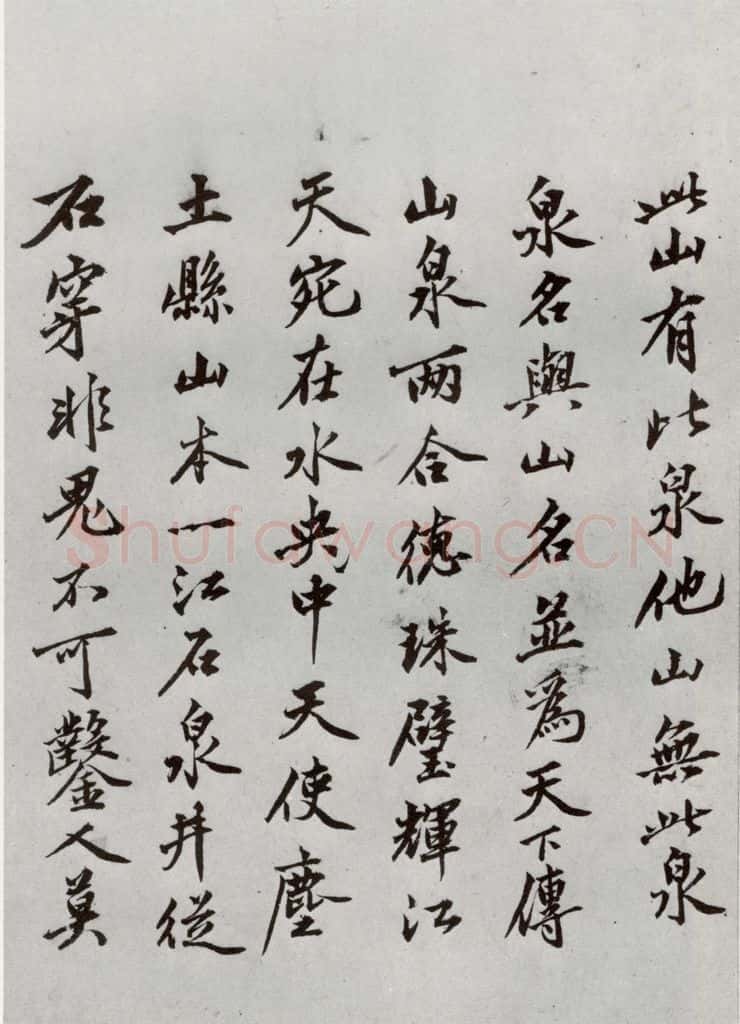 此山有此泉他山無此泉
泉名與山名並爲天下傳
山泉两合德珠璧輝江
天宛在水央中天使塵
土縣山本一江石泉井從
石穿非鬼不可鑿人莫
Shufawang.CN